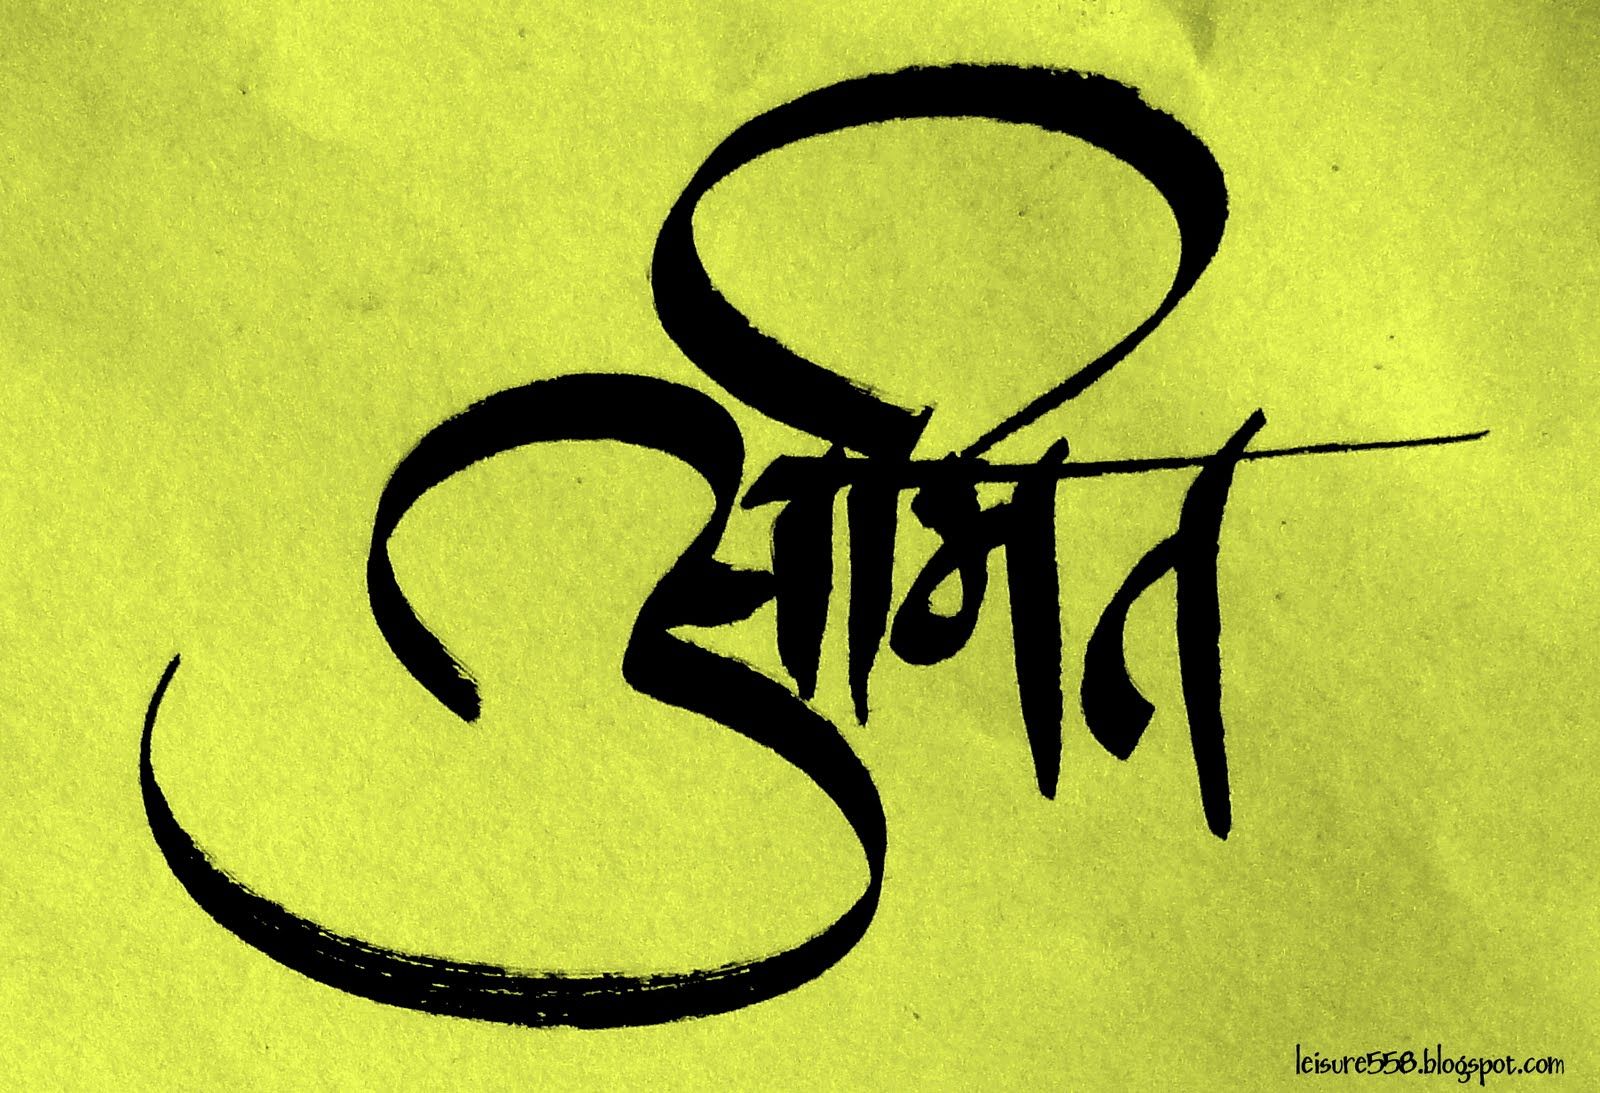 अमित
leisure558.blogspot.com